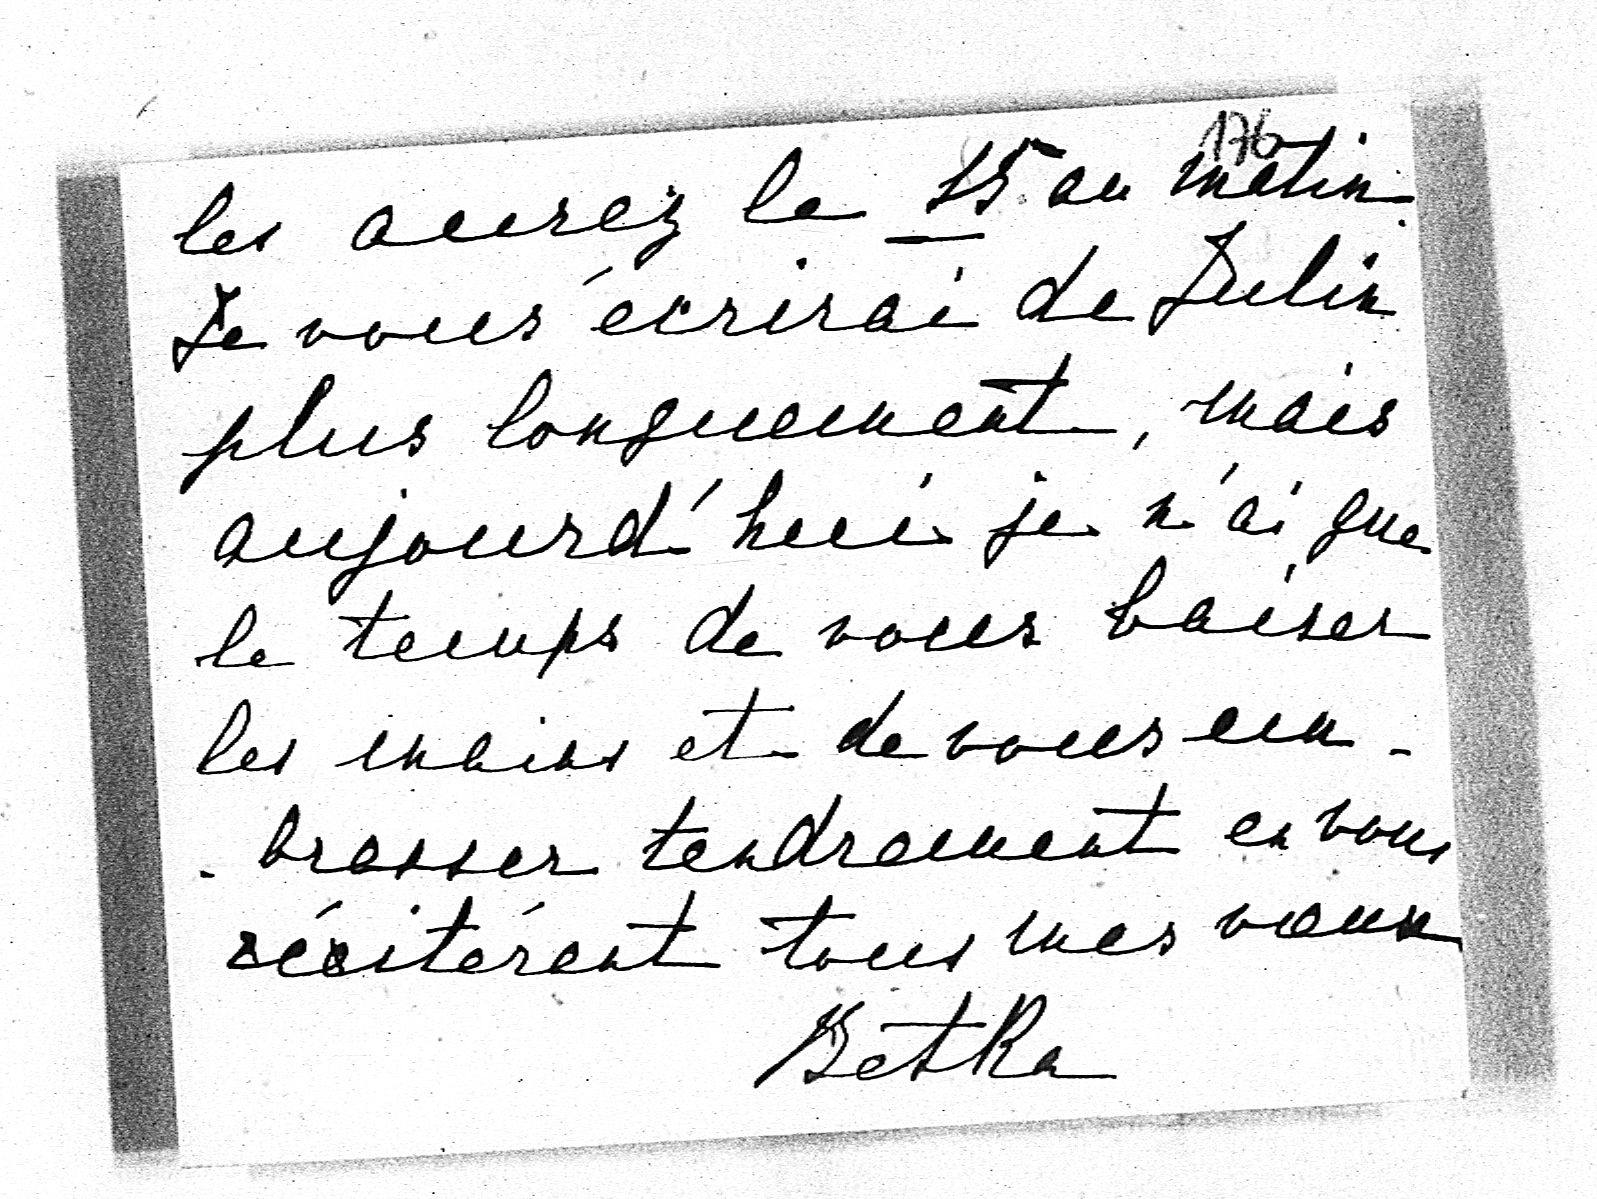 176
les aurez le 15 au matin.
Je vous écrirai de Julin
plus longuement, mais
aujourd'hui je n'ai que
le temps de vous baiser
les mains et de vous em-
- brasser tendrement en vous
réitérant tous mes vœux
Betka